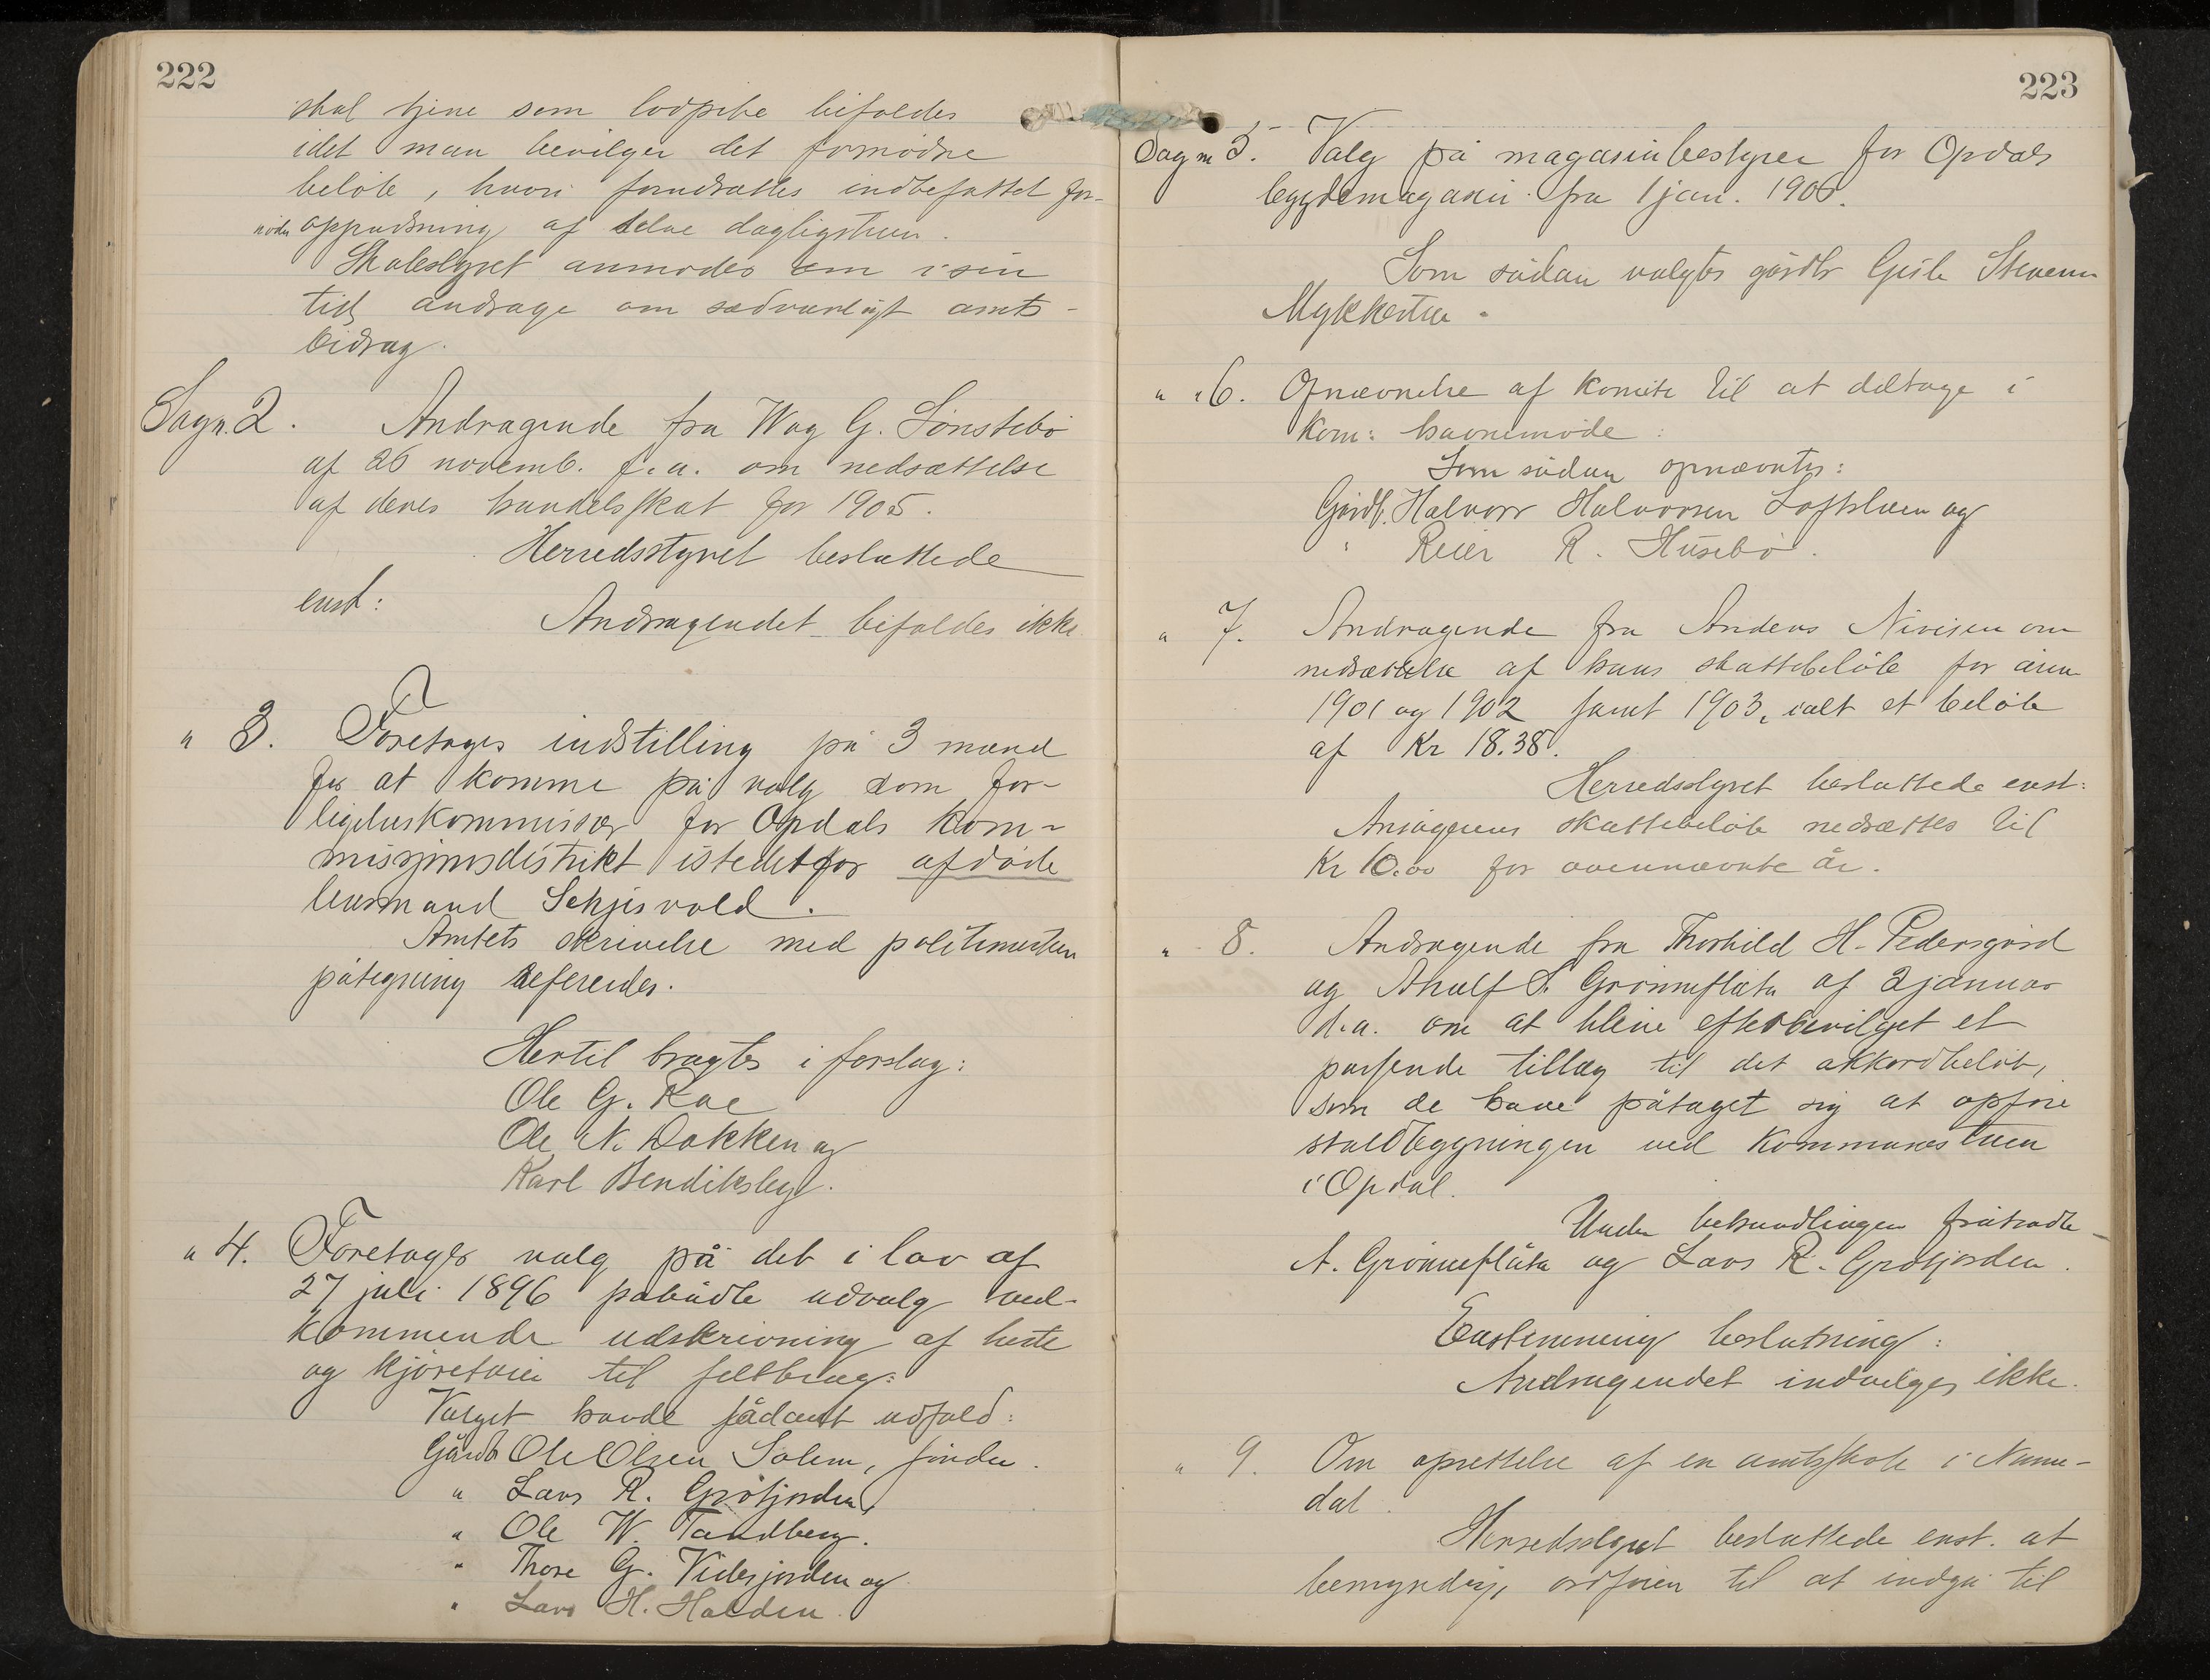 222
skal tjene som lodpibe bifaldes
idet man bevilger det fornødne
beløb, hvori forudsættes indbefattet for-
nøden oppudsning af selve dagligstuen.
Skolestyret anmodes om i sin
tid andrage om sædvanligt amts-
bidrag.
Sag n. 2. Andragende fra Wag G. Sønstebø
af 26 novemb. f.a. om nedsættelse
af deres handelsskat for 1905.
Herredsstyret besluttede
enst:
Andragendet bifaldes ikke.
" 3. Foretages indstilling på 3 mænd
for at komme på valg som for-
ligelseskommissær for Opdals kom-
missjonsdistrikt istedetfor afdøde
lensmand Skjisvold.
Amtets skrivelse med politimesteren
påtegning refereredes.
Hertil bragtes i forslag:
Ole G. Raae
Ole N. Dokken og
Karl Bendiksby.
" 4. Foretages valg på det i lov af
27 juli 1896 påbudte udvalg ved-
kommende udskrivning af heste
og kjøretøier til feltbrug:
Valget havde sådant udfald:
Gårdb. Ole Olsen Solem, finder.
" Lars R. Grøtjorden,
" Ole W. Tandberg.
" Thore G. Videsjorden og
" Lars H. Halden.
223
Sag n 5. Valg på magasinbestyrer for Opdals
bygdemagasin fra 1 jan. 1906.
Som sådan valgtes gårdb. Gisle Steveson
Mykkestue.
" " 6. Opnævnelse af komite til at deltage i
kom: havnemøde:
Som sådan opnævntes:
Gårdb. Halvor Halvorsen Loftsluen og
" Reier R. Husebø.
" 7. Andragende fra Anders Nirisen om
nedsættelse af hans skattebeløb for årene
1901 og 1902 samt 1903, ialt et beløb
af Kr 18.38.
Herredsstyret besluttede enst:
Ansøgerens skattebeløb nedsættes til
Kr 10.00 for ovennævnte år.
" 8. Andragende fra Thorhild H. Pedersgård
og Anulf S. Grønneflåta af 2 januar
d.a. om at blive efterbevilget et
passende tillæg til det akkordbeløb,
som de have påtaget sig at opføre
staldbygningen ved Kommunestuen
i Opdal.
Under behandlingen fratrådte
A. Grønneflåta og Lars R. Grøtjorden.
Enstemmig beslutning:
Andragendet indvilges ikke.
" 9. Om oprettelse af en amtsskole i Nume-
dal.
Herredsstyret besluttede enst. at
bemyndige ordføren til at indgå til